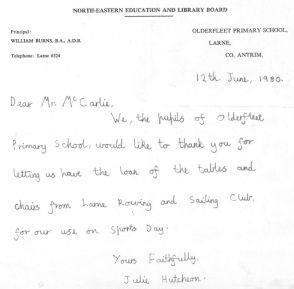 NORTH-EASTERN EDUCATION AND LIBRARY BOARD
Principal:
WILLIAM BURNS, B.A., A.D.B.
Telephone: Larne 6324
OLDERFLEET PRIMARY SCHOOL,
LARNE,
CO. ANTRIM.
12th June, 1980.
Dear Mr. McCarlie,
We, the pupils of Olderfleet
Primary School, would like to thank you for
letting us have the loan of the tables and
chairs from Larne Rowing and Sailing Club,
for our use on Sports Day.
Yours Faithfully,
Julie Hutcheon.